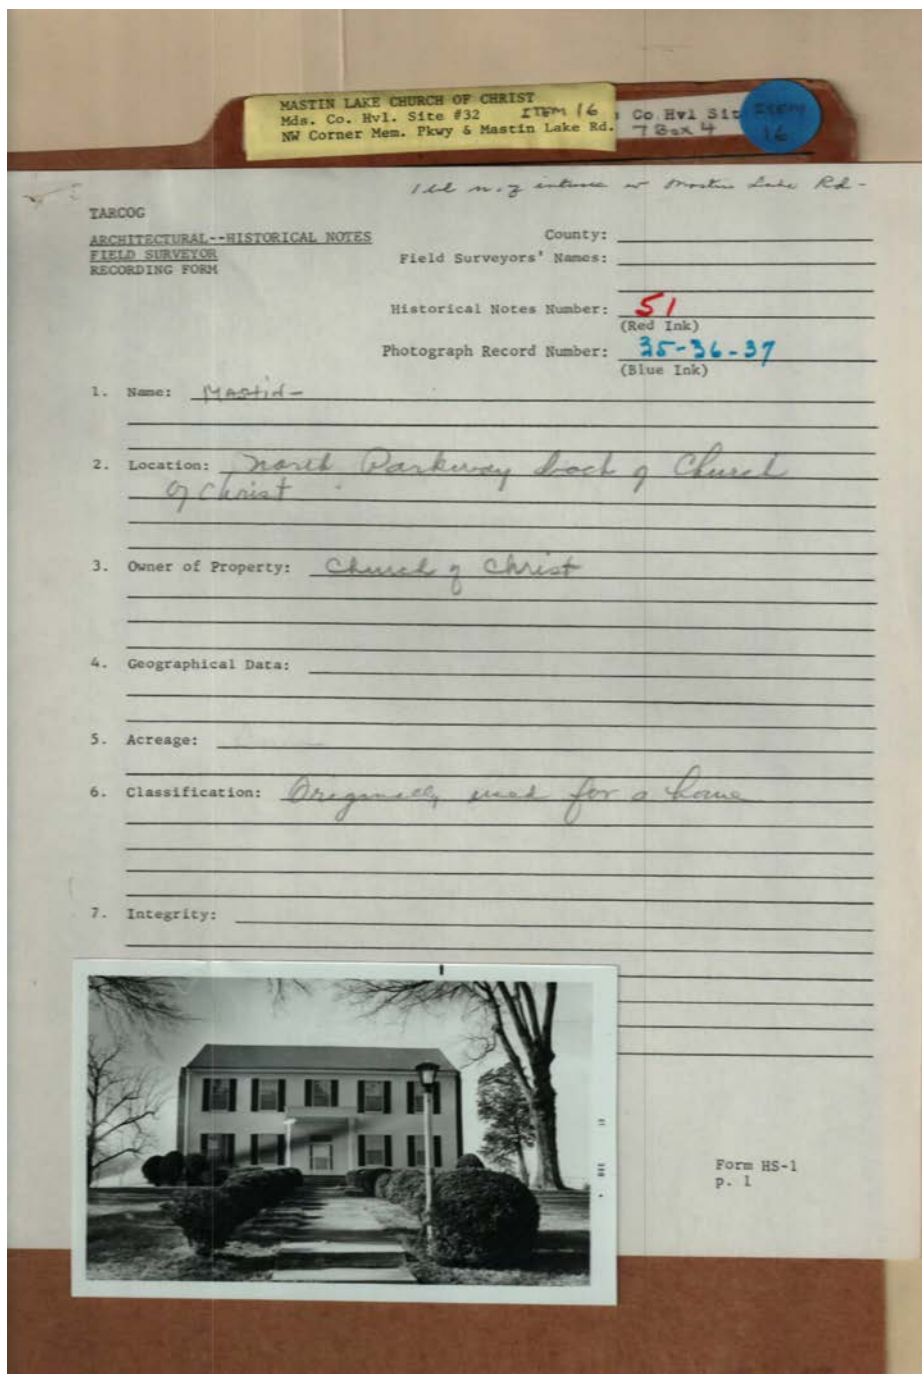 MASTIN LAKE CHURCH OF CHRIST
Mds. Co. Hvl. Site #32 ITEM 16
NW Corner Mem. Pkwy & Mastin Lake Rd.
Co Hvl Sit
7 Box 4
ITEM
16
Mastin Lake Rd-
TARCOG
ARCHITECTURAL--HISTORICAL NOTES
FIELD SURVEYOR
RECORDING FORM
County:
Field Surveyors' Names:
Historical Notes Number: 51
(Red Ink)
Photograph Record Number: 35-36-37
(Blue Ink)
1. Name: Mastin-
2. Location: North Parkway back of Church
of Christ
3. Owner of Property: Church of Christ
4. Geographical Data:
5. Acreage:
6. Classification: Originally used for a home
7. Integrity:
Form HS-1
p. 1